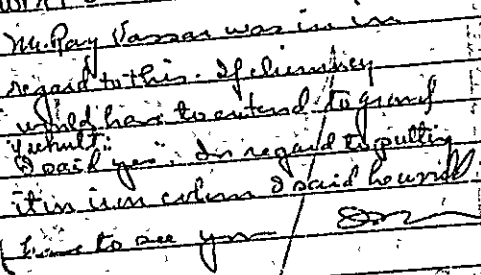 Mr. Ray Vassar was in in
regard to this. If chimney
would have to extend to ground
I said "yes". In regard to putting
it in iron column I said he would
have to see you